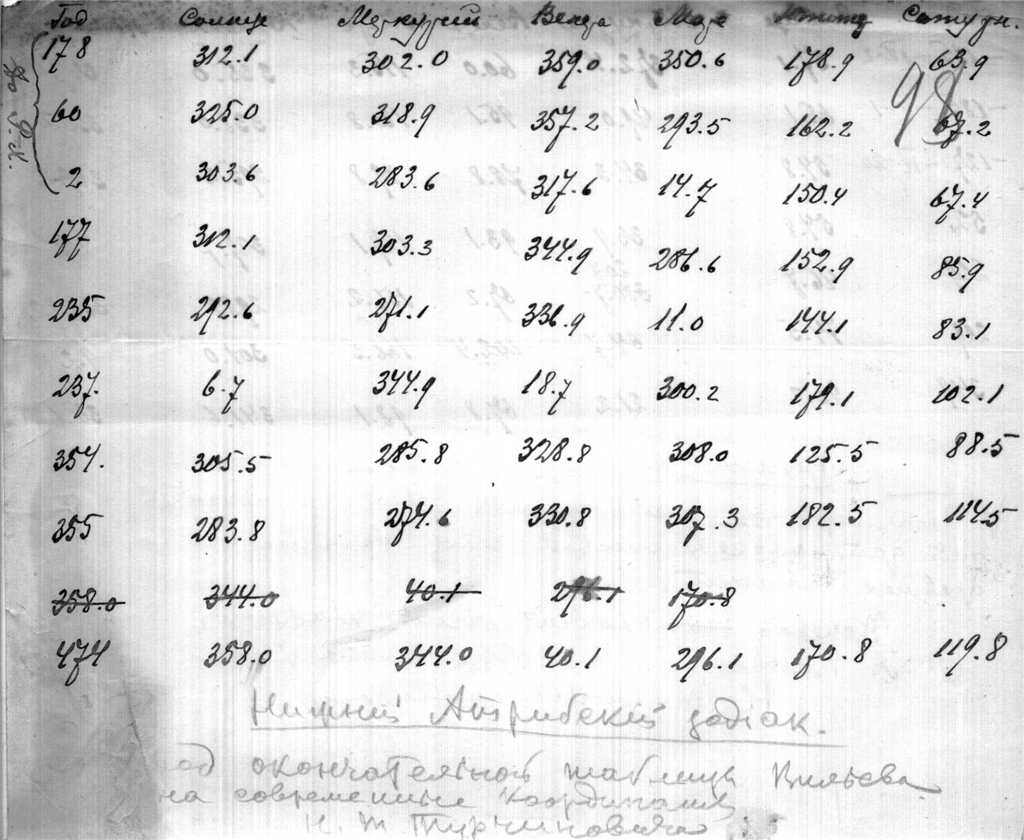 Год Солнце Меркурий Венера Марс Юпитер Сатурн.
178 312.1 302.0 359.0 350.6 178.9 63.9
98
60 325.0 318.9 357.2 293.5 162.2 67.2
2 303.6 283.6 317.6 14.7 150.4 67.4
177 312.1 303.3 344.9 286.6 152.9 85.9
235 292.6 271.1 336.9 11.0 144.1 83.1
237. 6.7 344.9 18.7 300.2 179.1 102.1
354. 305.5 285.8 328.8 308.0 125.5 88.5
355 283.8 274.6 330.8 307.3 182.5 114.5
358.0 344.0 40.1 296.1 170.8
474 358.0 344.0 40.1 296.1 170.8 119.8
Нижний Атрибскій зодіак.
окончательной таблицы Вильева
на современные координаты
Н. М. Турчиновича